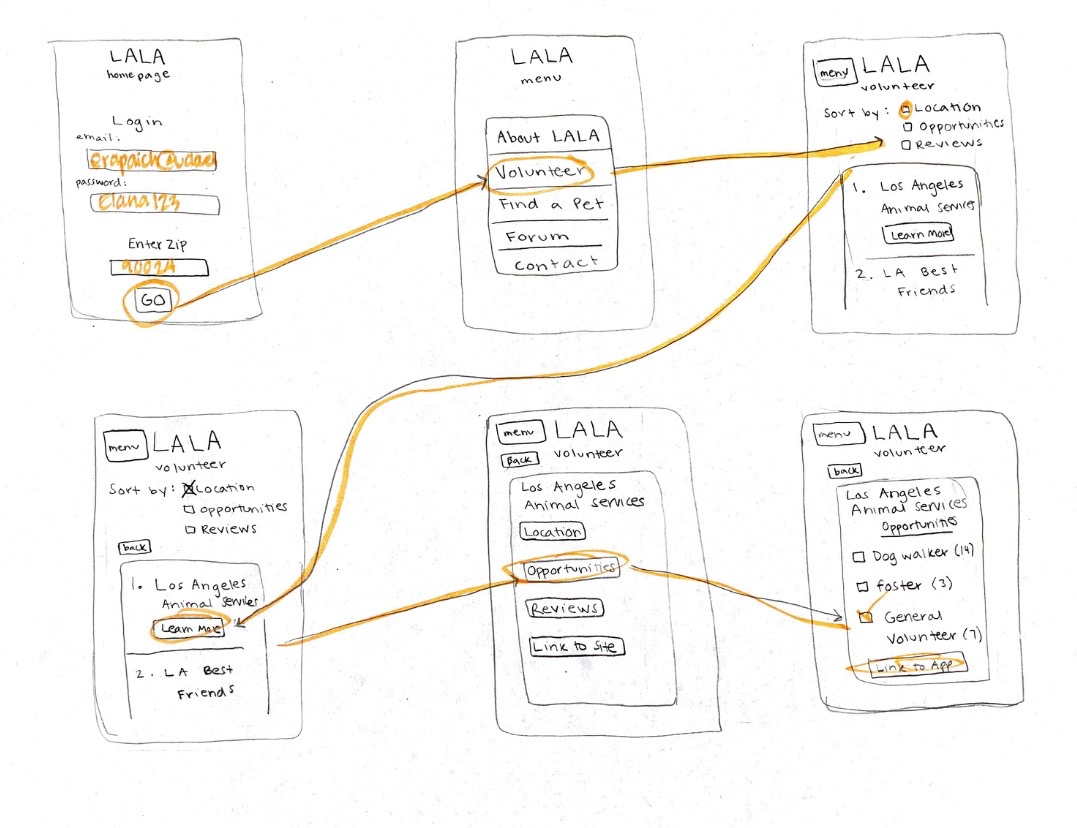 LALA
homepage
Login
email:
password:
Elana123
Enter Zip
90024
GO
LALA
menu
About LALA
Volunteer
Find a Pet
Forum
Contact
menu
LALA
volunteer
Sort by: Location
Opportunities
Reviews
1. Los Angeles
Animal Services
Learn More
2. LA Best
Friends
menu
LALA
volunteer
Sort by: Location
Opportunities
Reviews
back
1. Los Angeles
Animal Services
Learn More
2. LA Best
Friends
menu
LALA
Back
volunteer
Los Angeles
Animal Services
Location
Opportunities
Reviews
Link to Site
menu
LALA
volunteer
back
Los Angeles
Animal Services
Opportunities
Dog walker (14)
foster (3)
General
Volunteer (7)
Link to App